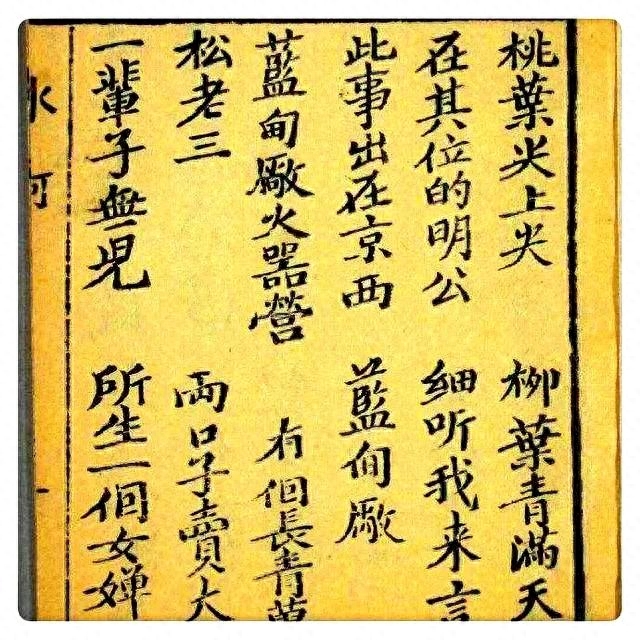 桃葉尖上尖 柳葉青滿天
在其位的明公 細听我来言
此事出在京西 藍甸厰
藍甸厰火器營 有佪長青萬
松老三 両口子賣大
一輩子無児 所生一佪女嬋
河